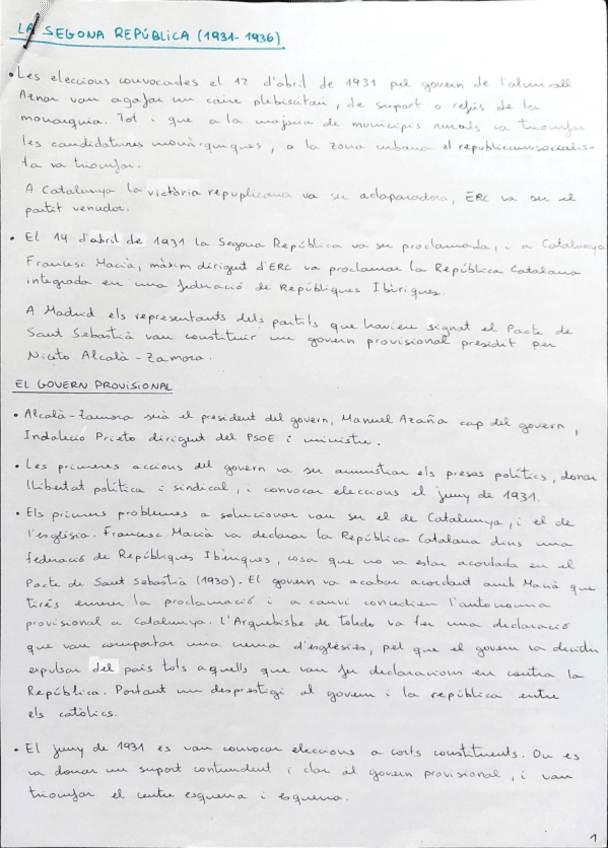 LA SEGONA REPÚBLICA (1931-1936)
• Les eleccions convocades el 12 d'abril de 1931 pel govern de l'almirall
Aznar van agafar un caire plebiscitari, de suport o refús de la
monarquia. Tot i que a la majoria de municipis rurals va triomfar
les candidatures monàrquiques, a la zona urbana el republicanosocialis-
ta va triomfar.
A Catalunya la victòria republicana va ser aclaparadora, ERC va ser el
partit venedor.
• El 14 d'abril de 1931 la Segona República va ser proclamada, i a Catalunya
Francesc Macià, màxim dirigent d'ERC va proclamar la República Catalana
integrada en una federació de Repúbliques Ibèriques.
A Madrid els representants dels partits que havien signat el Pacte de
Sant Sebastià van constituir un govern provisional presidit per
Niceto Alcalà-Zamora.
EL GOVERN PROVISIONAL
• Alcalà-Zamora serà el president del govern, Manuel Azaña cap del govern,
Indalecio Prieto dirigent del PSOE i ministre.
• Les primeres accions del govern va ser amnistiar els presos polítics, donar
llibertat política i sindical, i convocar eleccions el juny de 1931.
• Els primers problemes a solucionar van ser el de Catalunya, i el de
l'església. Francesc Macià va declarar la República Catalana dins una
federació de Repúbliques Ibèriques, cosa que no va estar acordada en el
Pacte de Sant Sebastià (1930). El govern va acabar acordant amb Macià que
tirés enrere la proclamació i a canvi concedien l'autonomia
provisional a Catalunya. L'Arquebisbe de Toledo va fer una declaració
que van comportar una crema d'esglésies, pel que el govern va decidir
expulsar del país tots aquells que van fer declaracions en contra la
República. Portant un desprestigi al govern i la república entre
els catòlics.
• El juny de 1931 es van convocar eleccions a corts constituents. On es
va donar un suport contundent i clar al govern provisional, i van
triomfar el centre esquerra i esquerra.
1